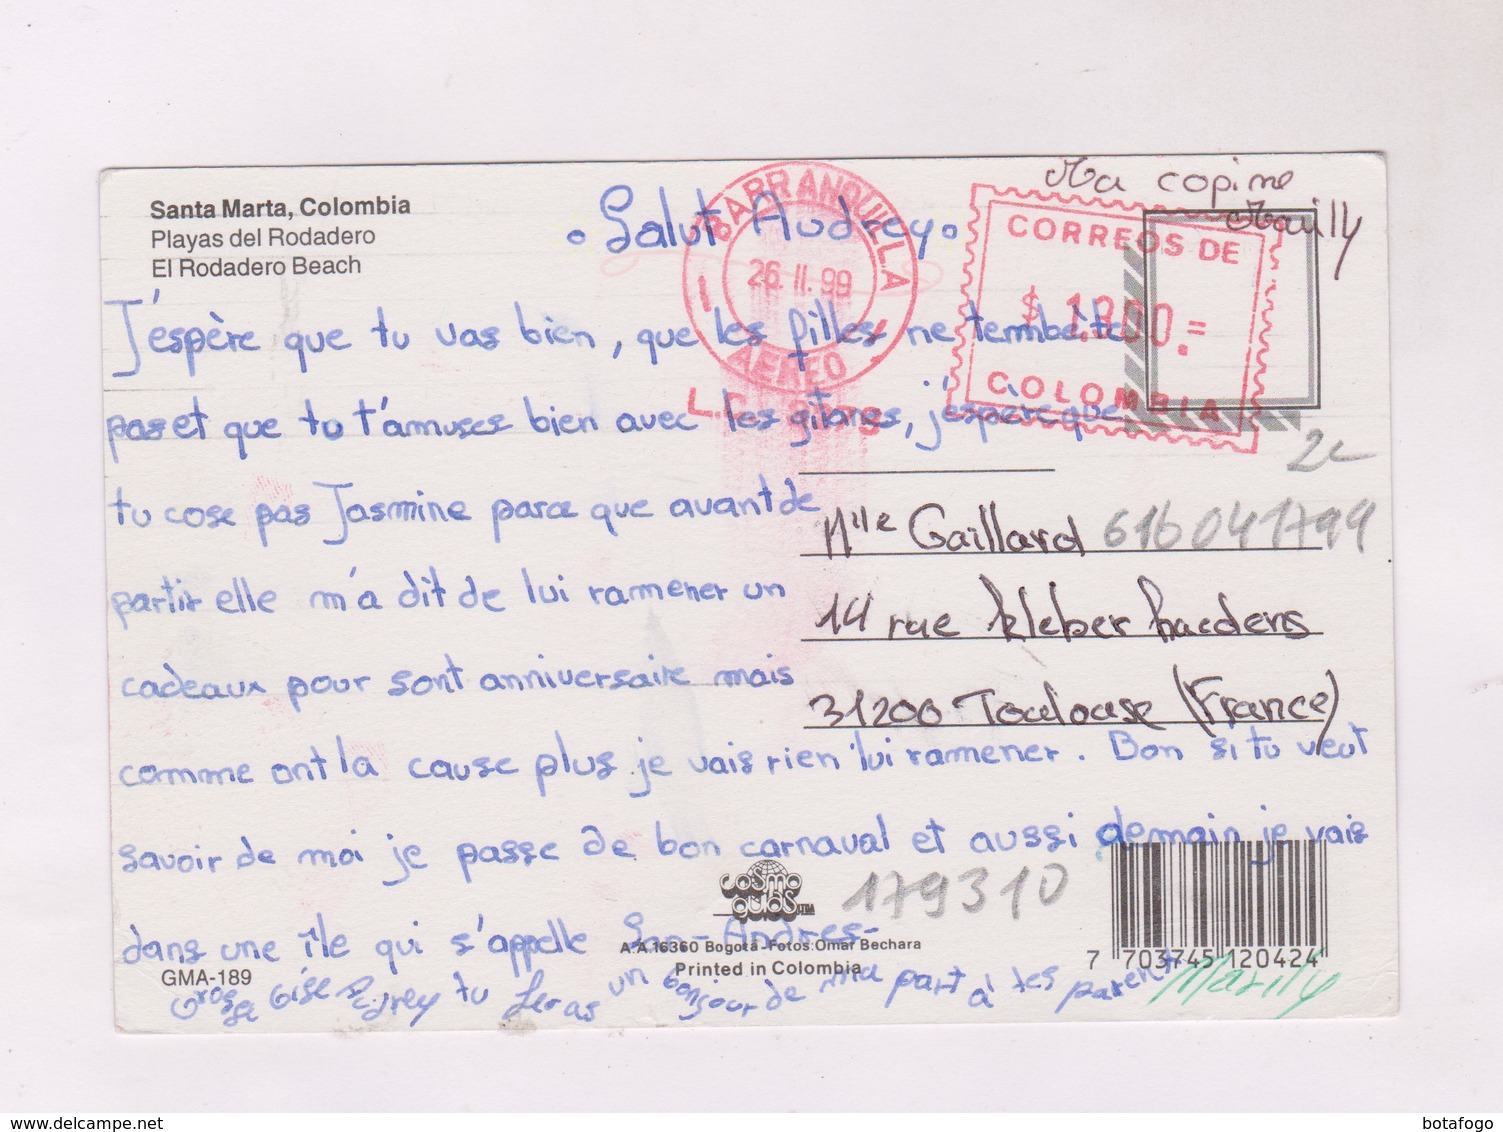 Santa Marta, Colombia
Playas del Rodadero
El Rodadero Beach
BARRANQUILLA
26. II. 99
AEREO
CORREOS DE
COLOMBIA
Ma copine
Mailly
Salut Audrey
J'espère que tu vas bien, que les filles ne tembête
pas et que tu t'amuses bien avec les gitanes, j'espère que
tu cose pas Jasmine parce que avant de
partir elle m'a dit de lui ramener un
cadeaux pour sont anniversaire mais
comme ont la cause plus je vais rien lui ramener. Bon si tu veut
savoir de moi je passe de bon carnaval et aussi demain je vais
dans une île qui s'appelle San-Andres-
tu feras un bonjour de ma part à tes parent
2e
Mlle Gaillard 616041799
14 rue kleber haedens
31200 Toulouse (France)
179310
cosmo
guias LTDA
A.A. 16360 Bogotá - Fotos: Omar Bechara
Printed in Colombia
GMA-189
7 703745 120424
delcampe.net
botafogo